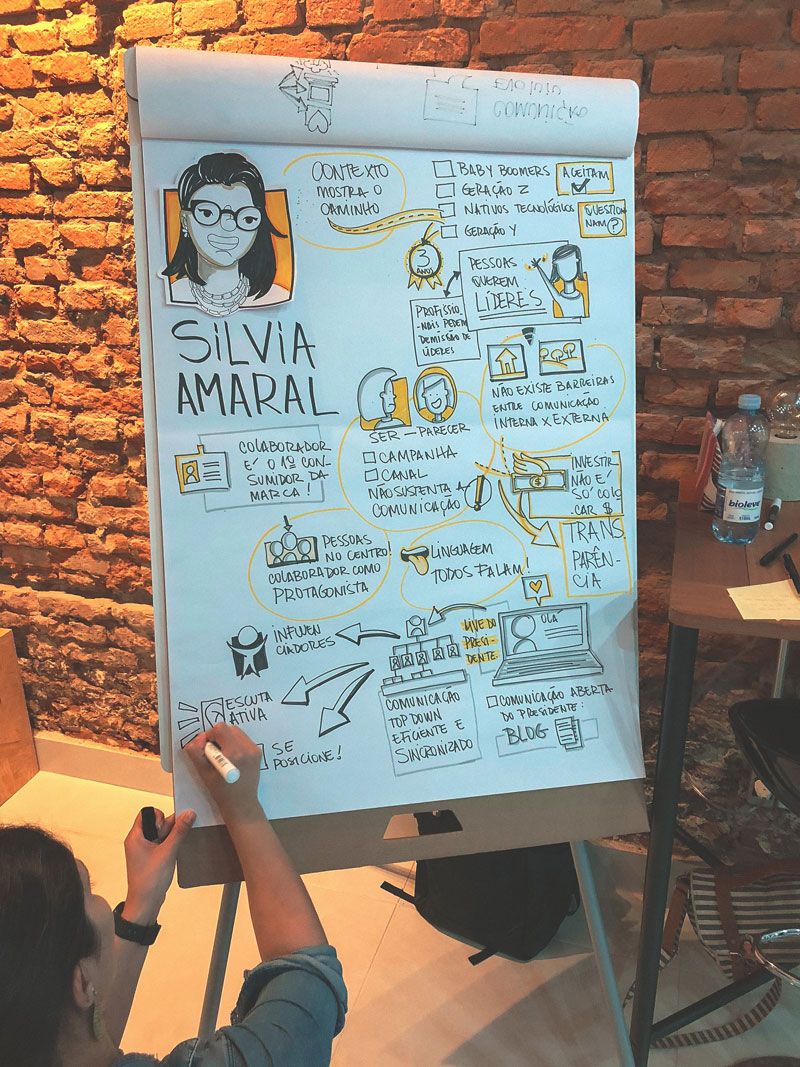 COMUNICAÇÃO
CONTEXTO
MOSTRA O
CAMINHO
BABY BOOMERS
GERAÇÃO Z
NATIVOS TECNOLÓGICOS
GERAÇÃO Y
ACEITAM
QUESTIO
NAM?
3
ANOS
PESSOAS
QUEREM
LÍDERES
PROFISSIO
-NAIS PEDEM
DEMISSÃO DE
LÍDERES
SILVIA
AMARAL
NÃO EXISTE BARREIRAS
ENTRE COMUNICAÇÃO
INTERNA X EXTERNA
SER - PARECER
CAMPANHA
CANAL
NÃO SUSTENTA A
COMUNICAÇÃO
!
COLABORADOR
E' O 1º CON-
SUMIDOR DA
MARCA!
$
INVESTIR
NÃO E'
SO' COLO
CAR $
TRANS
PARÊN-
CIA
PESSOAS
NO CENTRO!
COLABORADOR COMO
PROTAGONISTA
LINGUAGEM
TODOS FALAM!
INFLUEN
CIADORES
LIVE DO
PRESI-
DENTE
OLA
ESCUTA
ATIVA
SE
POSICIONE!
COMUNICAÇÃO
TOP DOWN
EFICIENTE E
SINCRONIZADO
COMUNICAÇÃO ABERTA
DO PRESIDENTE:
BLOG
bioleve